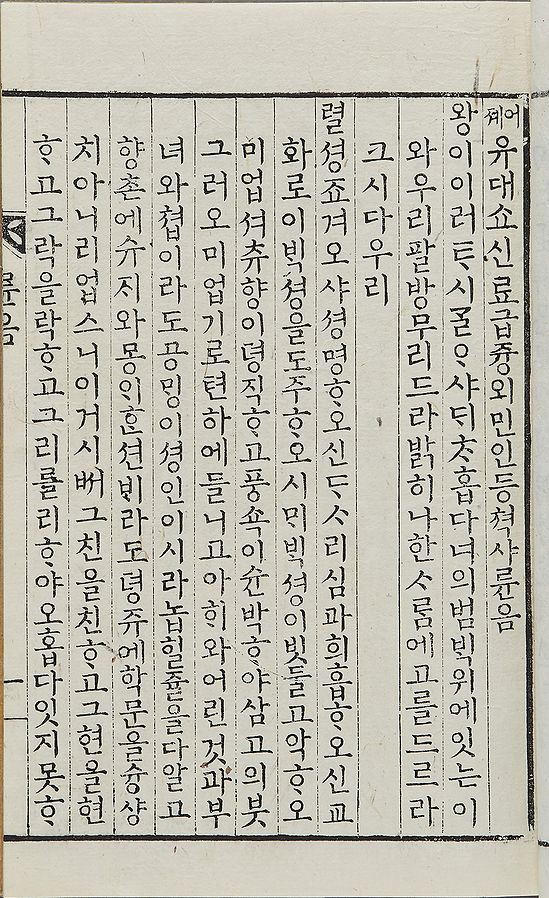 어졔유대쇼신료급즁외민인등쳑샤륜음
왕이이러ᄐᆞ시ᄀᆞᆯᄋᆞ샤ᄃᆡᄎᆞ홉다녀의범ᄇᆡᆨ위에잇는이
와우리팔방무리드라밝히나한ᄉᆞ룸에고를드르라
크시다우리
렬셩죠겨오샤셩명ᄒᆞ오신ᄃᆞᄉᆞ리심과희흡ᄒᆞ오신교
화로이ᄇᆡᆨ셩을도주ᄒᆞ오시ᄆᆡᄇᆡᆨ셩이빗둘고악ᄒᆞ오
미업셔츄향이뎡직ᄒᆞ고풍쇽이슌박ᄒᆞ야삼고의붓
그러오미업기로텬하에들니고아희와어린것과부
녀와쳡이라도공밍이셩인이시라놉힐쥴을다알고
향촌에슈ᄌᆡ와몽ᄋᆡᄒᆞᆫ션ᄇᆡ라도뎡쥬에학문을슝샹
치아니리업스니이거시ᄡᅥ그친을친ᄒᆞ고그현을현
ᄒᆞ고그락을락ᄒᆞ고그리를리ᄒᆞ야오홉다잇지못ᄒᆞ
륜음
一